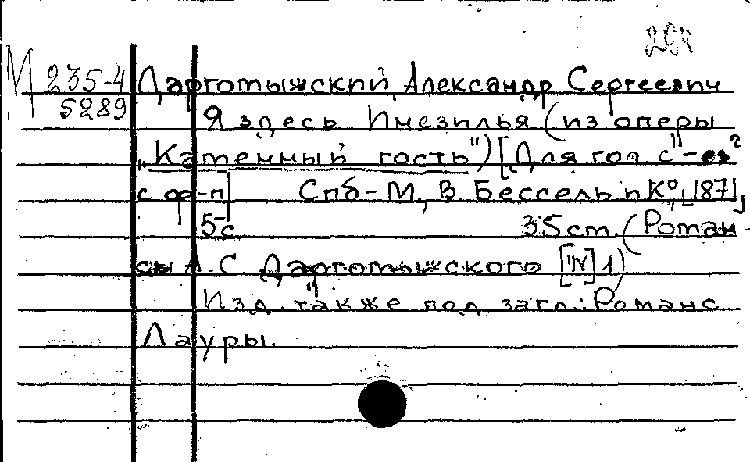 М 235-4 Даргомыжский, Александр Сергеевич
5289 Я здесь Инезилья (из оперы
„Каменный гость") [Для гол. с"-es²
с ф-п] Спб-М, В. Бессель и К°, [187],
5с 35 cm. (Роман-
сы А. С. Даргомыжского [IV] 1)
Изд. также под загл.: Романс
Лауры.